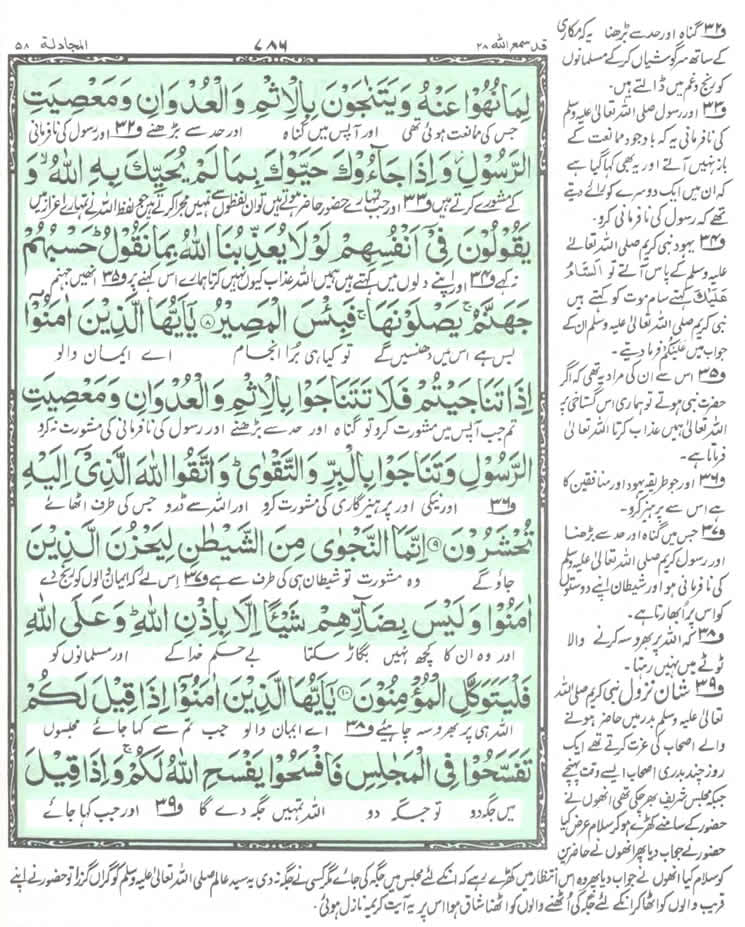 المجادلة ۵۸
۷۸۶
قد سمع الله ۲۸
لِمَا نُهُوْا عَنْهُ وَیَتَنٰجَوْنَ بِالْاِثْمِ وَالْعُدْوَانِ وَمَعْصِیَتِ
جس کی ممانعت ہوئی تھی اور آپس میں گناہ اور حد سے بڑھنے و۳۲ اور رسول کی نافرمانی
الرَّسُوْلِ وَاِذَا جَآءُوْكَ حَیَّوْكَ بِمَا لَمْ یُحَیِّكَ بِهِ اللّٰهُ وَ
کے مشورے کرتے ہیں و۳۳ اور جب تمہارے حضور حاضر ہوتے ہیں تو ان لفظوں سے تمہیں مجرا کرتے ہیں جو لفظ اللہ نے تمہارے اعزاز میں
یَقُوْلُوْنَ فِیْۤ اَنْفُسِهِمْ لَوْلَا یُعَذِّبُنَا اللّٰهُ بِمَا نَقُوْلُ حَسْبُهُمْ
نہ کہے و۳۴ اور اپنے دلوں میں کہتے ہیں ہمیں اللہ عذاب کیوں نہیں کرتا ہمارے اس کہنے پر و۳۵ انھیں جہنم
جَهَنَّمُ یَصْلَوْنَهَا فَبِئْسَ الْمَصِیْرُ ۸ یٰۤاَیُّهَا الَّذِیْنَ اٰمَنُوْۤا
بس ہے اس میں دھنسیں گے تو کیا ہی برا انجام اے ایمان والو
اِذَا تَنَاجَیْتُمْ فَلَا تَتَنَاجَوْا بِالْاِثْمِ وَالْعُدْوَانِ وَمَعْصِیَتِ
تم جب آپس میں مشورت کرو تو گناہ اور حد سے بڑھنے اور رسول کی نافرمانی کی مشورت نہ کرو
الرَّسُوْلِ وَتَنَاجَوْا بِالْبِرِّ وَالتَّقْوٰی وَاتَّقُوا اللّٰهَ الَّذِیْۤ اِلَیْهِ
و۳۶ اور نیکی اور پرہیزگاری کی مشورت کرو اور اللہ سے ڈرو جس کی طرف اٹھائے
تُحْشَرُوْنَ ۹ اِنَّمَا النَّجْوٰی مِنَ الشَّیْطٰنِ لِیَحْزُنَ الَّذِیْنَ
جاؤ گے وہ مشورت تو شیطان ہی کی طرف سے ہے و۳۷ اس لئے کہ ایمان والوں کو رنج دے
اٰمَنُوْا وَلَیْسَ بِضَآرِّهِمْ شَیْـًٔا اِلَّا بِاِذْنِ اللّٰهِ وَعَلَی اللّٰهِ
اور وہ ان کا کچھ نہیں بگاڑ سکتا بے حکم خدا کے اور مسلمانوں کو
فَلْیَتَوَكَّلِ الْمُؤْمِنُوْنَ ۱۰ یٰۤاَیُّهَا الَّذِیْنَ اٰمَنُوْۤا اِذَا قِیْلَ لَكُمْ
اللہ ہی پر بھروسہ چاہیئے و۳۸ اے ایمان والو جب تم سے کہا جائے مجلسوں
تَفَسَّحُوْا فِی الْمَجٰلِسِ فَافْسَحُوْا یَفْسَحِ اللّٰهُ لَكُمْ وَاِذَا قِیْلَ
میں جگہ دو تو جگہ دو اللہ تمہیں جگہ دے گا و۳۹ اور جب کہا جائے
و۳۲ گناہ اور حد سے بڑھنا یہ کہ مکاری
کے ساتھ سرگوشیاں کرکے مسلمانوں
کو رنج و غم میں ڈالتے ہیں۔
و۳۳ اور رسول صلی اللہ تعالیٰ علیہ وسلم
کی نافرمانی یہ کہ باوجود ممانعت کے
باز نہیں آتے اور یہ بھی کہا گیا ہے
کہ ان میں ایک دوسرے کو رائے دیتے
تھے کہ رسول کی نافرمانی کرو۔
و۳۴ یہود نبی کریم صلی اللہ تعالیٰ
علیہ وسلم کے پاس آتے تو اَلسَّامُ
عَلَیْكَ کہتے سام موت کو کہتے ہیں
نبی کریم صلی اللہ تعالیٰ علیہ وسلم ان کے
جواب میں علیکم فرما دیتے۔
و۳۵ اس سے ان کی مراد یہ تھی کہ اگر
حضرت نبی ہوتے تو ہماری اس گستاخی پر
اللہ تعالیٰ ہمیں عذاب کرتا اللہ تعالیٰ
فرماتا ہے۔
و۳۶ اور جو طریقہ یہود اور منافقین کا
ہے اس سے پرہیز کرو۔
و۳۷ جس میں گناہ اور حد سے بڑھنا
اور رسول کریم صلی اللہ تعالیٰ علیہ وسلم
کی نافرمانی ہو اور شیطان اپنے دوستوں
کو اس پر ابھارتا ہے۔
و۳۸ کہ اللہ پر بھروسہ کرنے والا
ٹوٹے میں نہیں رہتا۔
و۳۹ شان نزول نبی کریم صلی اللہ
تعالیٰ علیہ وسلم بدر میں حاضر ہونے
والے اصحاب کی عزت کرتے تھے ایک
روز چند بدری اصحاب ایسے وقت پہنچے
جبکہ مجلس شریف بھر چکی تھی انھوں نے
حضور کے سامنے کھڑے ہو کر سلام عرض کیا
حضور نے جواب دیا پھر انھوں نے حاضرین
کو سلام کیا انھوں نے جواب دیا پھر وہ اس انتظار میں کھڑے رہے کہ انکے لئے مجلس میں جگہ کی جائے مگر کسی نے جگہ نہ دی یہ سید عالم صلی اللہ تعالیٰ علیہ وسلم کو گراں گزرا تو حضور نے اپنے
قریب والوں کو اٹھا کر انکے لئے جگہ کی اٹھنے والوں کو اٹھنا شاق ہوا اس پر یہ آیت کریمہ نازل ہوئی۔